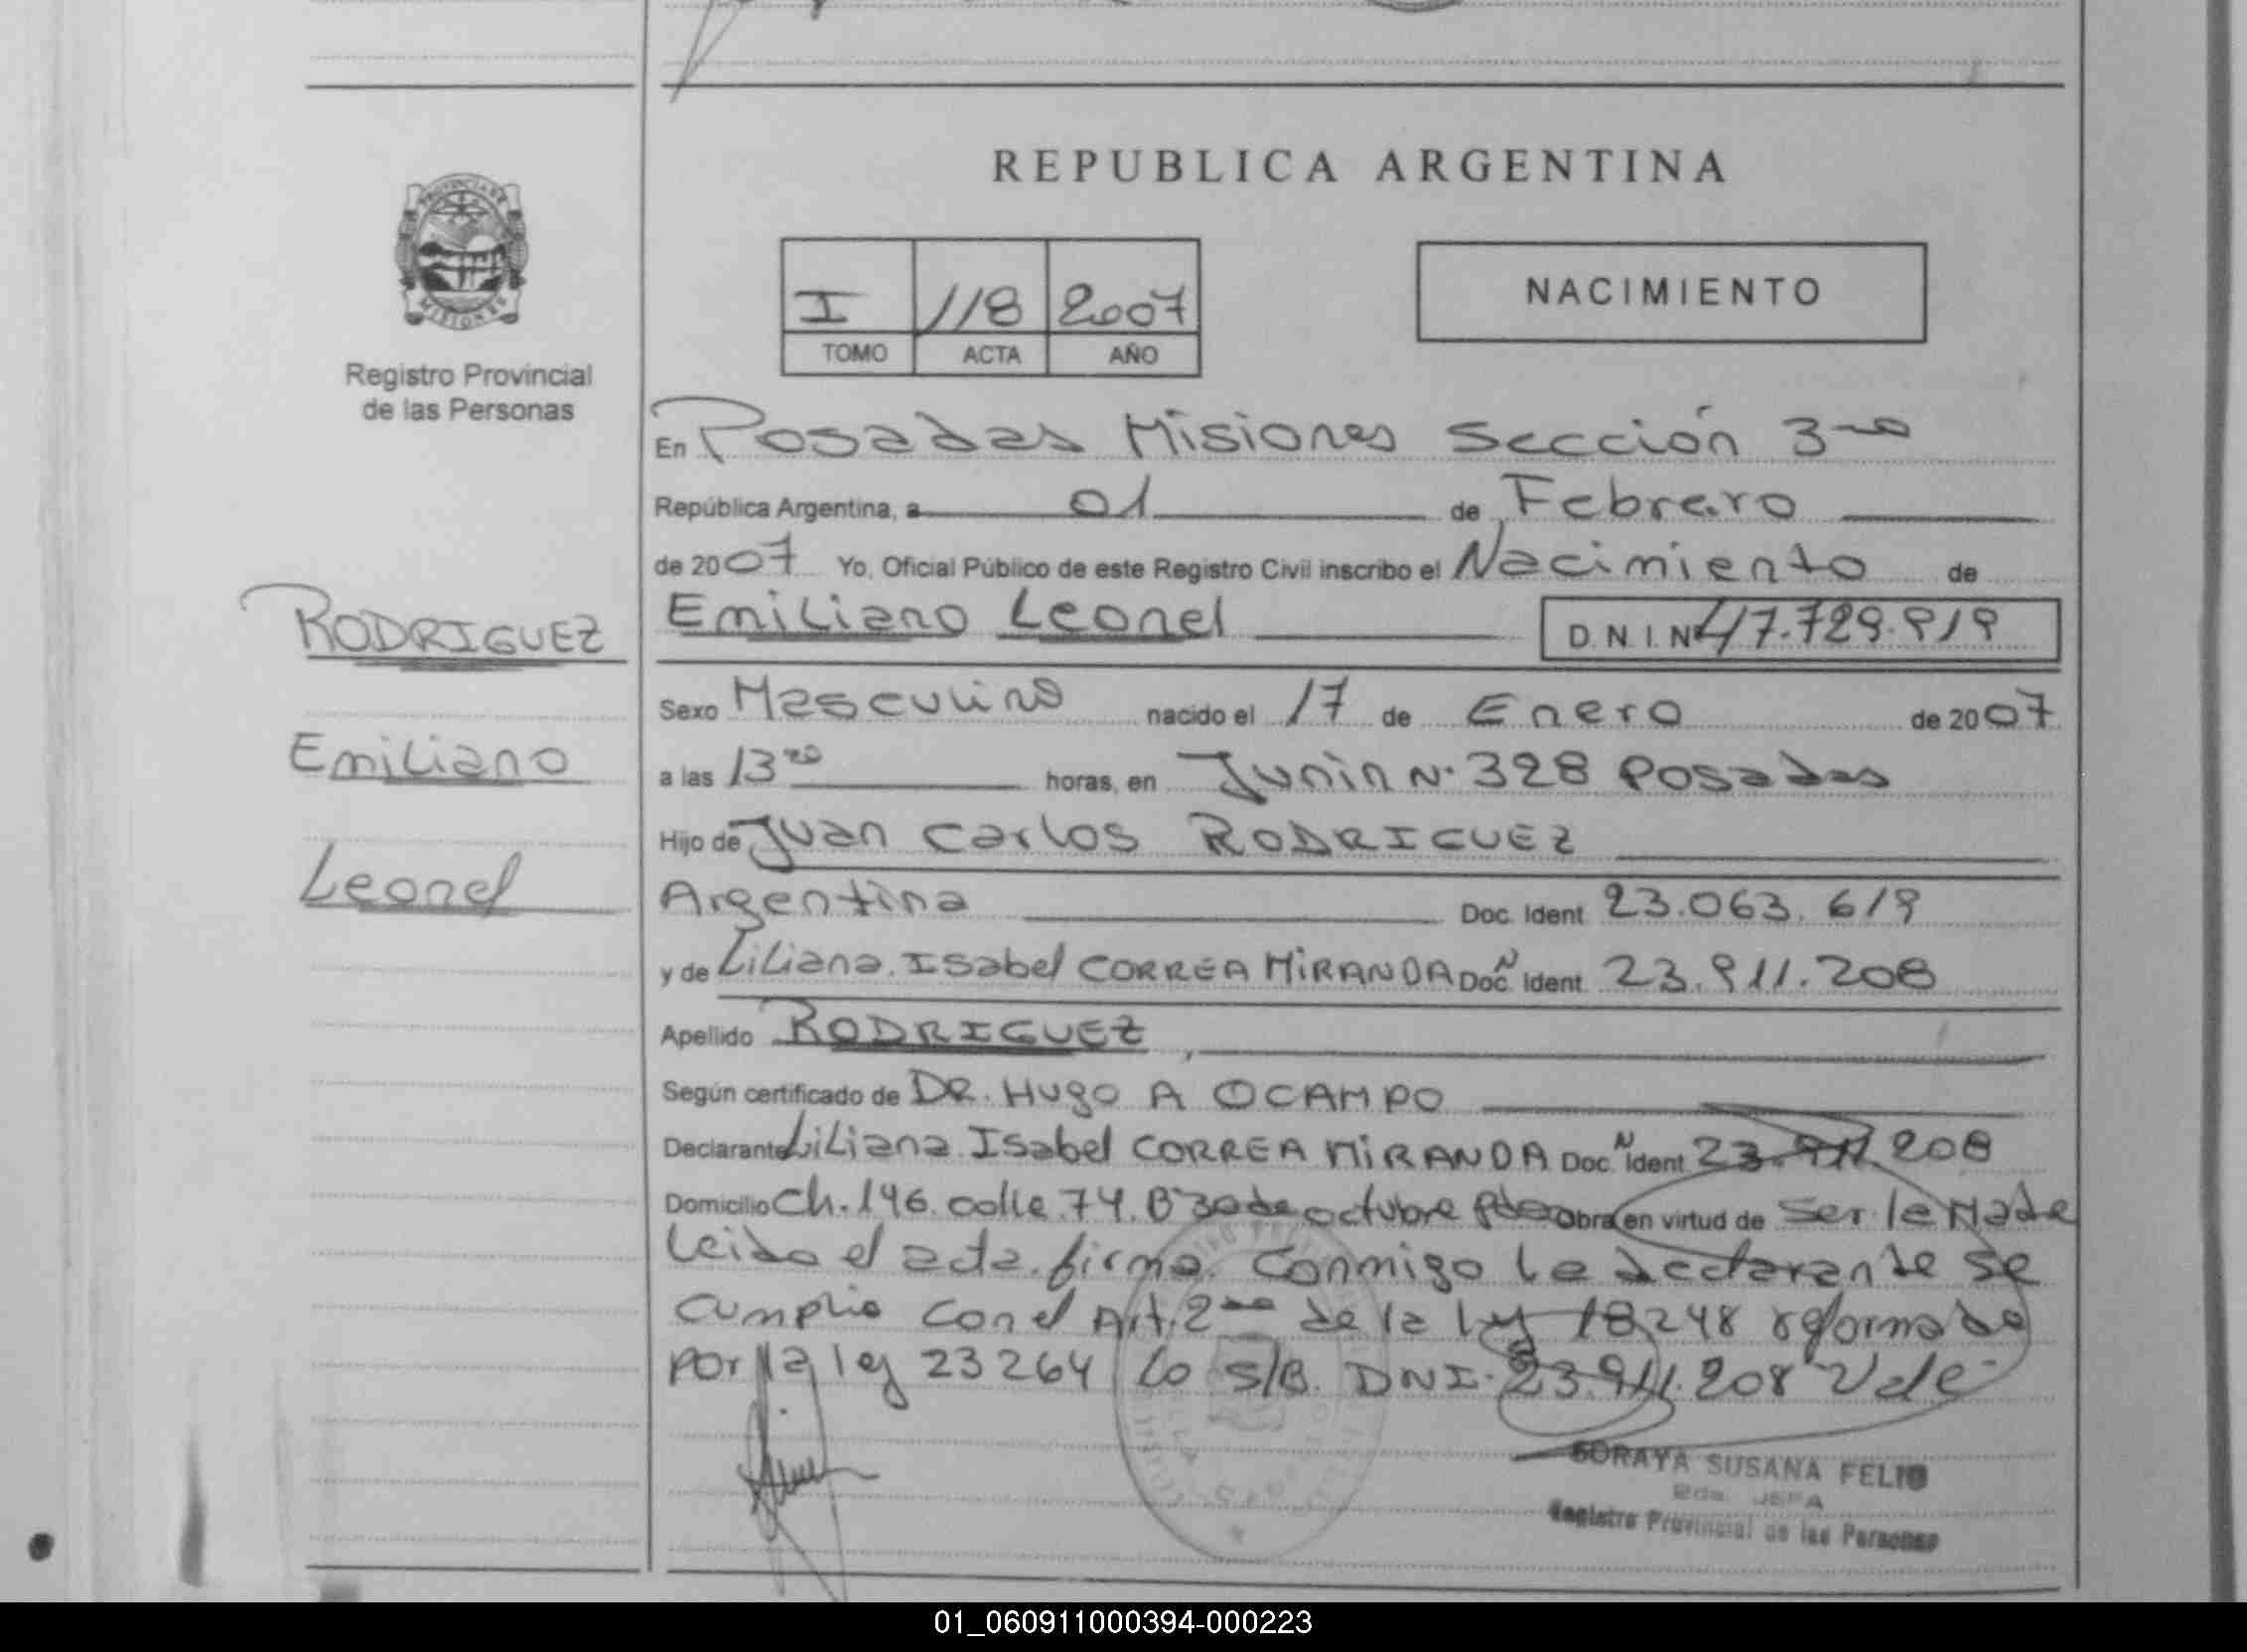 REPUBLICA ARGENTINA
PROVINCIA DE
MISIONES
Registro Provincial
de las Personas
I 118 2007
TOMO ACTA AÑO
NACIMIENTO
En Posadas Misiones Sección 3ra
República Argentina, a 01 de Febrero
de 2007 Yo, Oficial Público de este Registro Civil inscribo el Nacimiento de
Emiliano Leonel D.N.I.Nº 47.729.919
RODRIGUEZ
Emiliano
Leonel
Sexo Masculino nacido el 17 de Enero de 2007
a las 13 horas, en Junin Nº 328 Posadas
Hijo de Juan Carlos RODRIGUEZ
Argentina Doc. Ident 23.063.619
y de Liliana Isabel CORREA MIRANDA Doc. Ident. 23.911.208
Apellido RODRIGUEZ
Según certificado de DR. Hugo A OCAMPO
Declarante Liliana Isabel CORREA MIRANDA Doc. Ident 23.911.208
Domicilio Ch. 146 calle 74 Bº 30 de octubre Obra en virtud de Ser la Madre
Leida el acta firma Conmigo la declarante se
cumplio con el Art. 2do de la Ley 18248 reformado
por la ley 23264 Lo S/B. DNI. 23.911.208 Vale
SORAYA SUSANA FELIU
2da. JEFA
Registro Provincial de las Personas
01_060911000394-000223